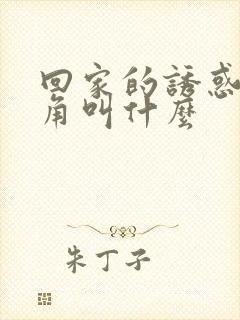 回家的誘惑
角叫什麼
朱丁子